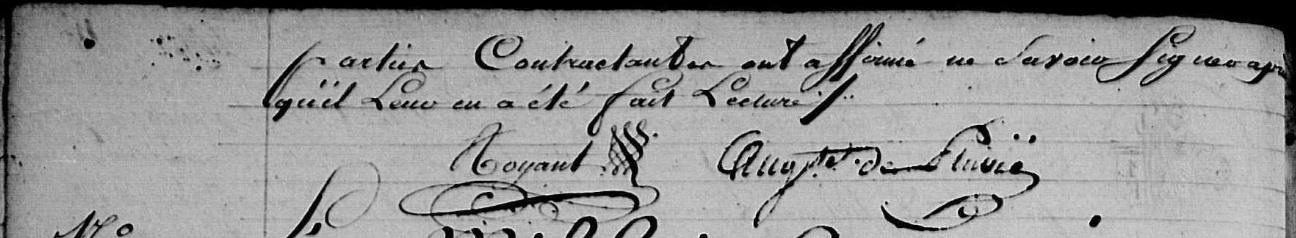 parties Contractantes ont affirmé ne Savoir Signer apr
qu'il Leur en a été fait Lecture /.
Noyant Aug.te de Pluvié
N°